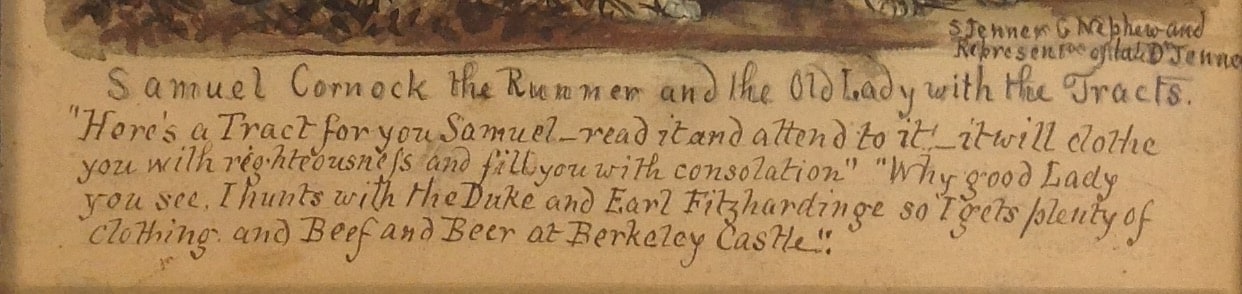 S Jenner G Nephew and
Represen.tve of late Dr Jenne
Samuel Cornock the Runner and the Old Lady with the Tracts.
"Here's a Tract for you Samuel–read it and attend to it!–it will clothe
you with righteousneſs and fill you with consolation" "Why good Lady
you see, I hunts with the Duke and Earl Fitzhardinge so I gets plenty of
clothing. and Beef and Beer at Berkeley Castle".